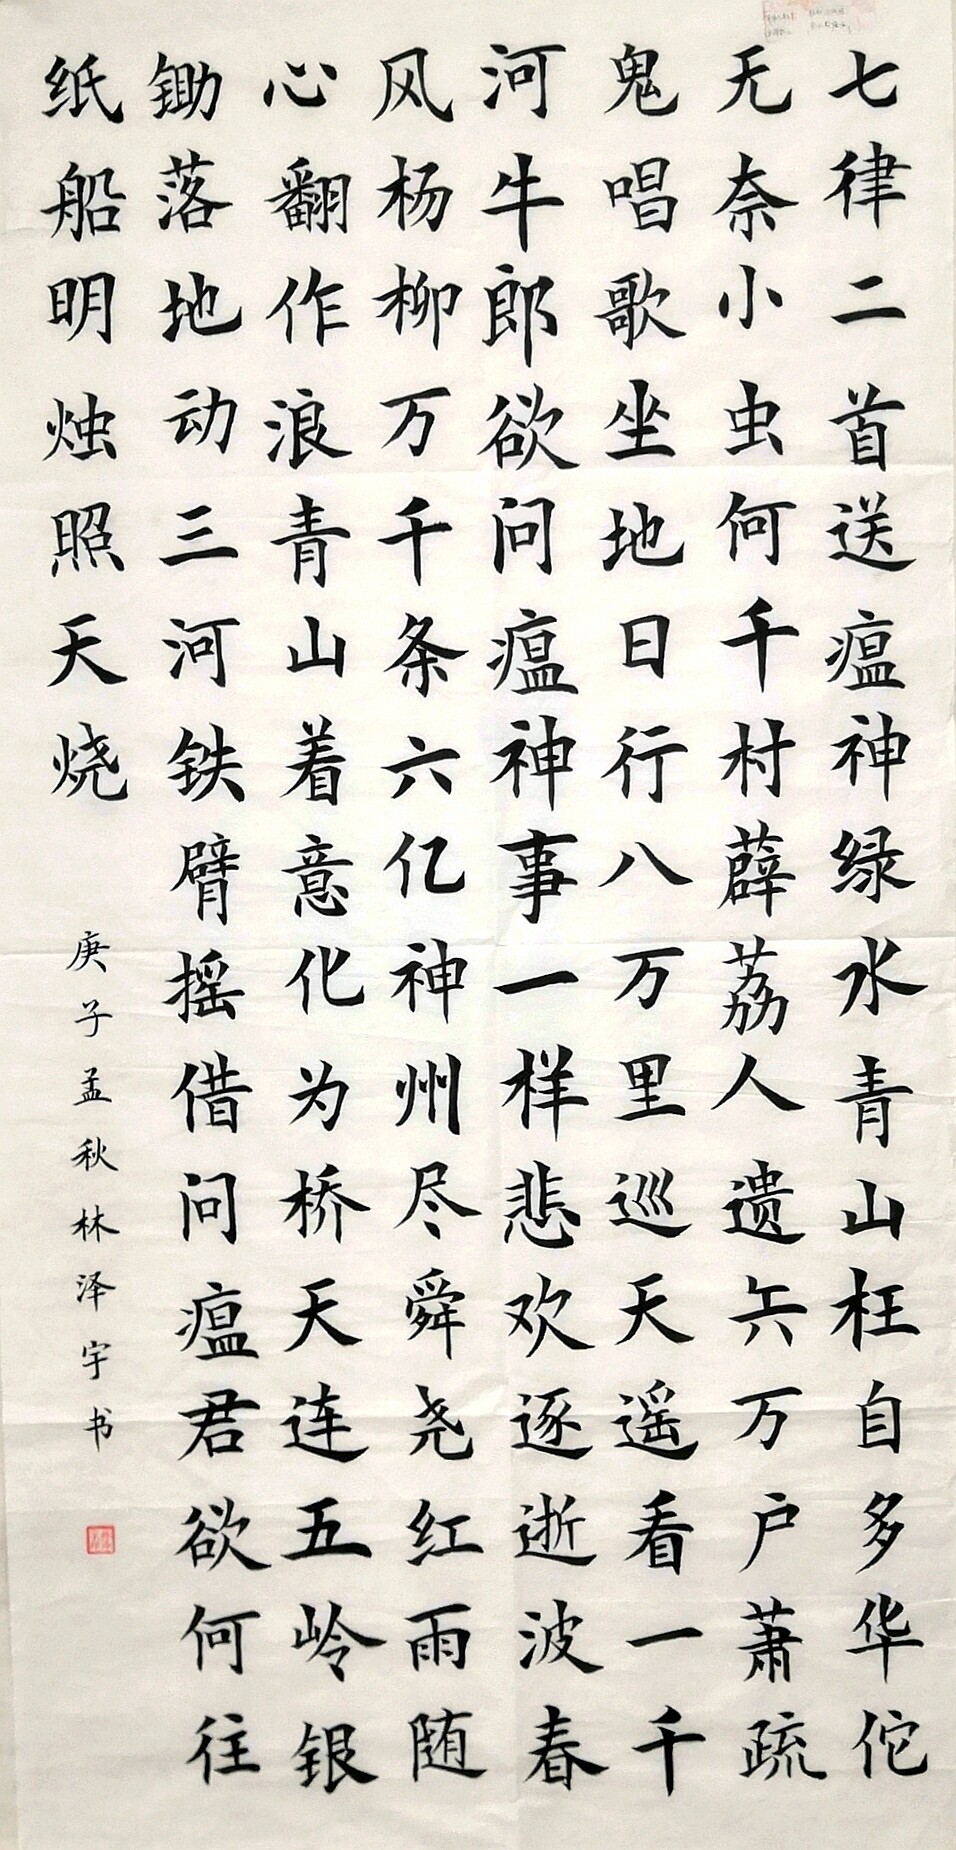 七律二首送瘟神绿水青山枉自多华佗
无奈小虫何千村薜荔人遗矢万户萧疏
鬼唱歌坐地日行八万里巡天遥看一千
河牛郎欲问瘟神事一样悲欢逐逝波春
风杨柳万千条六亿神州尽舜尧红雨随
心翻作浪青山着意化为桥天连五岭银
锄落地动三河铁臂摇借问瘟君欲何往
纸船明烛照天烧
庚子孟秋林泽宇书